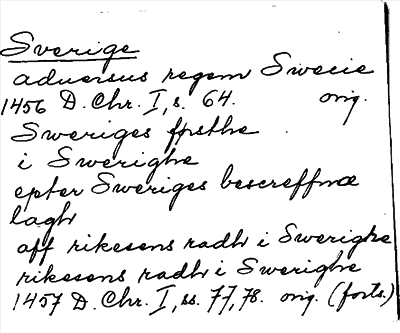 Sverige
aduersus regem Swecie
1456 D. Chr. I, s. 64. orig.
Sweriges
i Swerighe
epter Sweriges bescreffnæ
lagh
aff rikesens radh i Swerighe
rikesens radh i Swerighe
1457 D. Chr. I, ss. 77, 78. orig. (forts.)